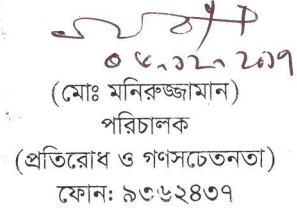 (মোঃ মনিরুজ্জামান)
পরিচালক
(প্রতিরোধ ও গণসচেতনতা)
ফোন: ৯৩৬২৪৩৭